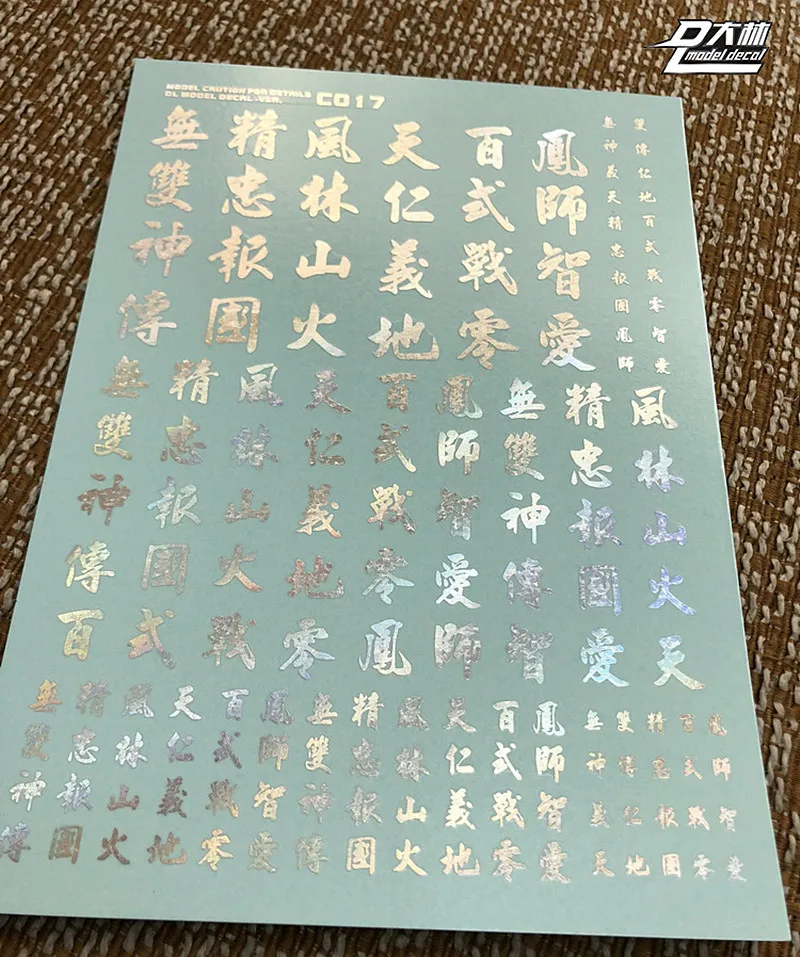 DL大林
model decal
MODEL CAUTION FOR DETAILS
DL MODEL DECAL-VER. C017
無雙神傳
精忠報國
風林山火
天仁義地
百式戰零
鳳師智愛
無神義天精忠報國鳳師
雙傳仁地百式戰零智愛
無雙神傳
精忠報國
風林山火
天仁義地
百式戰零
鳳師智愛
無雙神傳
精忠報國
風林山火
百式戰零鳳師智愛天
無雙神傳
精忠報國
風林山火
天仁義地
百式戰零
鳳師智愛
無雙神傳
精忠報國
風林山火
天仁義地
百式戰零
鳳師智愛
無神義天
雙傳仁地
精忠報國
百式戰零
鳳師智愛